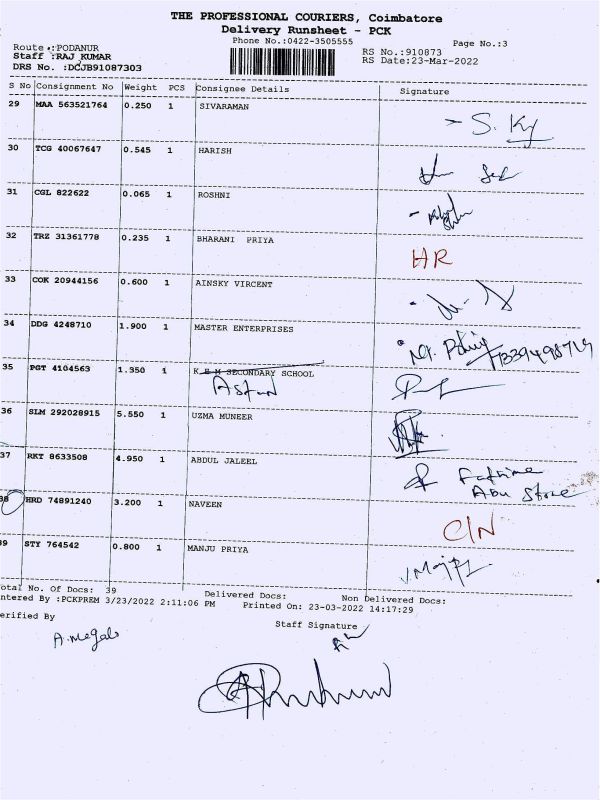 THE PROFESSIONAL COURIERS, Coimbatore
Delivery Runsheet - PCK
Phone No.:0422-3505555
Page No.:3
Route :PODANUR
Staff :RAJ KUMAR
DRS No. :DCJB91087303
RS No.:910873
RS Date:23-Mar-2022
S No Consignment No Weight PCS Consignee Details Signature
29 MAA 563521764 0.250 1 SIVARAMAN - S. Ky
30 TCG 40067647 0.545 1 HARISH
31 CGL 822622 0.065 1 ROSHNI
32 TRZ 31361778 0.235 1 BHARANI PRIYA HR
33 COK 20944156 0.600 1 AINSKY VIRCENT
34 DDG 4248710 1.900 1 MASTER ENTERPRISES
35 PGT 4104563 1.350 1 K E M SECONDARY SCHOOL
36 SLM 292028915 5.550 1 UZMA MUNEER
37 RKT 8633508 4.950 1 ABDUL JALEEL Fathima
Abu Store
38 HRD 74891240 3.200 1 NAVEEN C/N
39 STY 764542 0.800 1 MANJU PRIYA
otal No. Of Docs: 39 Delivered Docs: Non Delivered Docs:
ntered By :PCKPREM 3/23/2022 2:11:06 PM Printed On: 23-03-2022 14:17:29
erified By Staff Signature